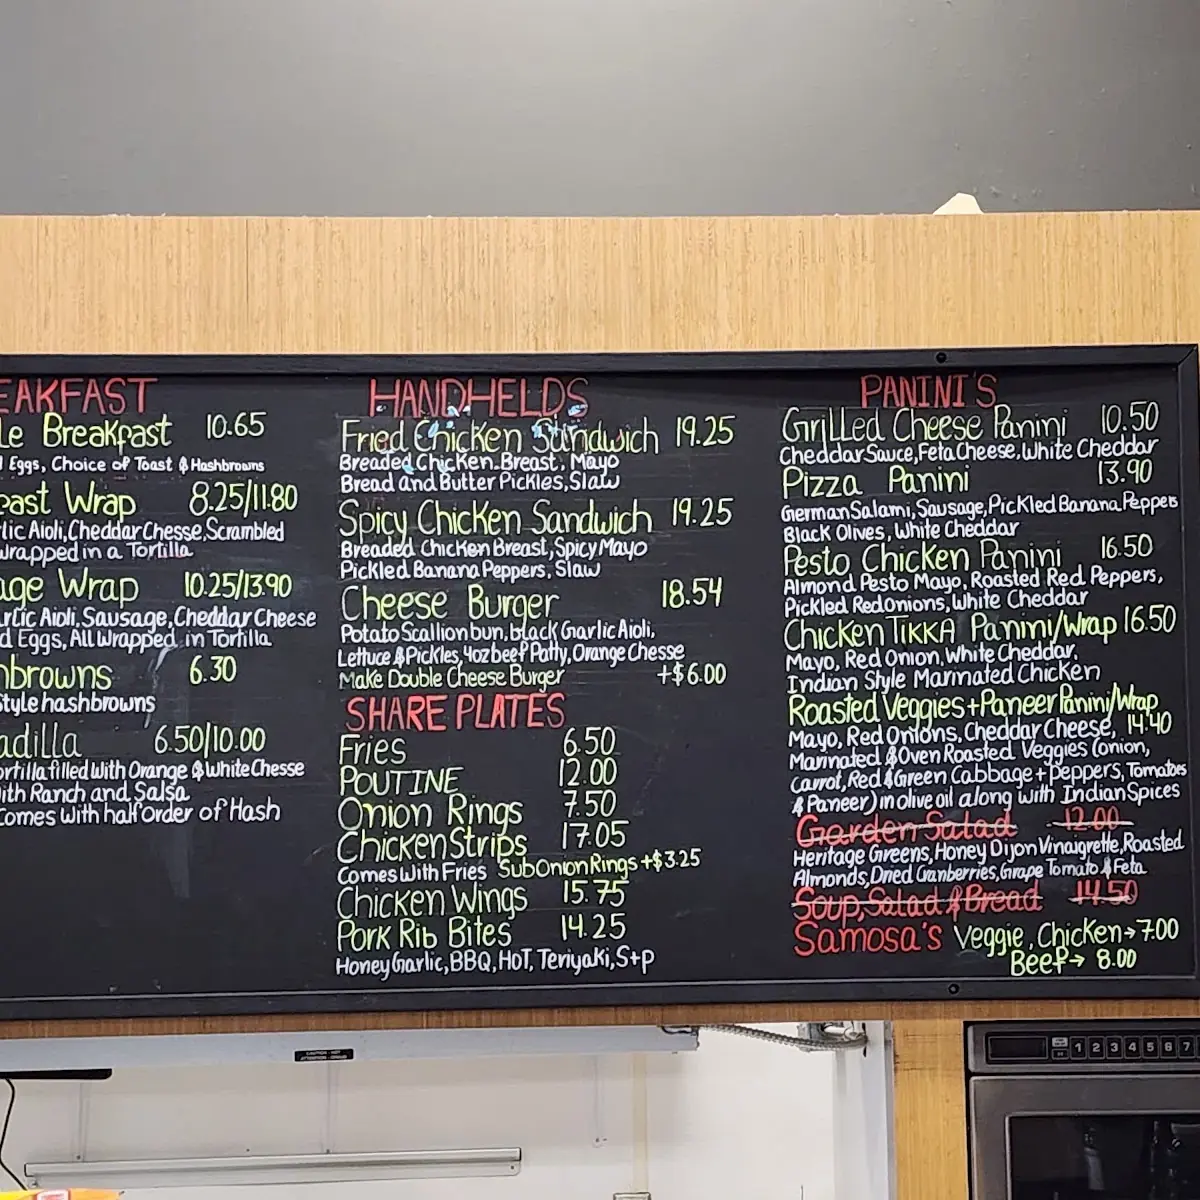 EAKFAST
le Breakfast 10.65
Eggs, Choice of Toast & Hashbrowns
east Wrap 8.25/11.80
lic Aioli, Cheddar Chesse, Scrambled
wrapped in a Tortilla
age Wrap 10.25/13.90
rlic Aioli, Sausage, Cheddar Cheese
d Eggs, All Wrapped in Tortilla
hbrowns 6.30
style hashbrowns
adilla 6.50/10.00
ortilla filled With Orange & White Chesse
ith Ranch and Salsa
Comes With half Order of Hash
HANDHELDS
Fried Chicken Sandwich 19.25
Breaded Chicken Breast, Mayo
Bread and Butter Pickles, Slaw
Spicy Chicken Sandwich 19.25
Breaded Chicken Breast, Spicy Mayo
Pickled Banana Peppers, Slaw
Cheese Burger 18.54
Potato Scallion bun, black Garlic Aioli,
Lettuce & Pickles, 4oz beef Patty, Orange Chesse
Make Double Cheese Burger +$6.00
SHARE PLATES
Fries 6.50
POUTINE 12.00
Onion Rings 7.50
Chicken Strips 17.05
Comes With Fries Sub Onion Rings +$3.25
Chicken Wings 15.75
Pork Rib Bites 14.25
Honey Garlic, BBQ, HOT, Teriyaki, S+P
PANINI'S
Grilled Cheese Panini 10.50
Cheddar Sauce, Feta Cheese, White Cheddar
Pizza Panini 13.90
German Salami, Sausage, Pickled Banana Peppers
Black Olives, White Cheddar
Pesto Chicken Panini 16.50
Almond Pesto Mayo, Roasted Red Peppers,
Pickled Red Onions, White Cheddar
Chicken TIKKA Panini/Wrap 16.50
Mayo, Red Onion, White Cheddar,
Indian Style Marinated Chicken
Roasted Veggies + Paneer Panini/Wrap
Mayo, Red Onions, Cheddar Cheese, 14.40
Marinated & Oven Roasted Veggies (onion,
Carrot, Red & Green Cabbage + peppers, Tomatoes
& Paneer) in olive oil along with Indian Spices
Garden Salad 12.00
Heritage Greens, Honey Dijon Vinaigrette, Roasted
Almonds, Dried Cranberries, Grape Tomato & Feta
Soup, Salad & Bread 14.50
Samosa's Veggie, Chicken→7.00
Beef→ 8.00
1 2 3 4 5 6 7